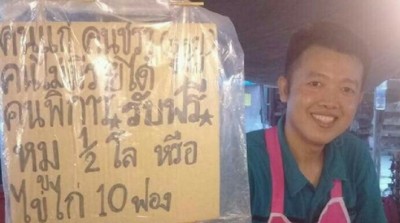 คนแก่ คนชรา
คนไม่มีรายได้
คนพิการ รับฟรี
หมู 1/2 โล หรือ
ไข่ไก่ 10 ฟอง